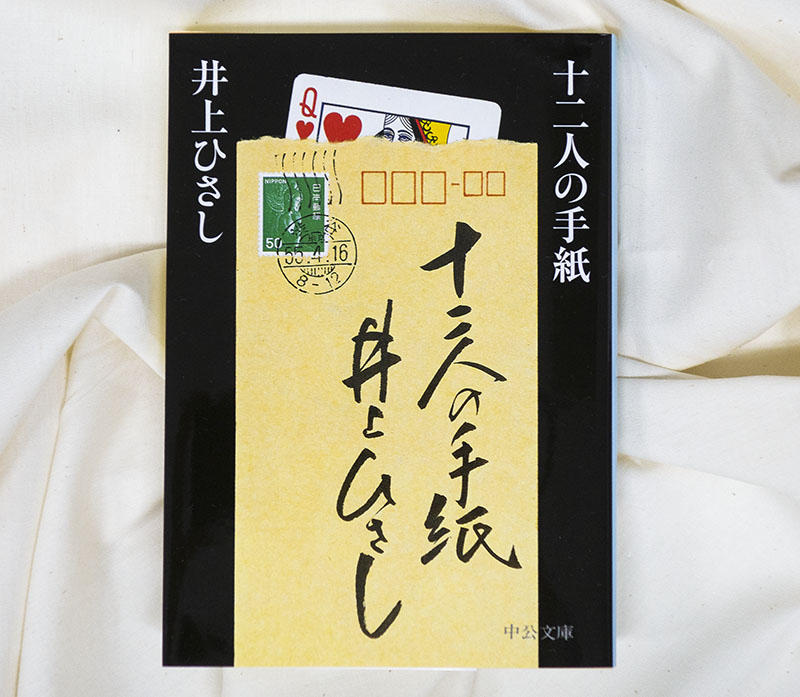 十二人の手紙
井上ひさし
Q
NIPPON
日本郵便
50
55.4.16
8-12
十二人の手紙
井上ひさし
中公文庫